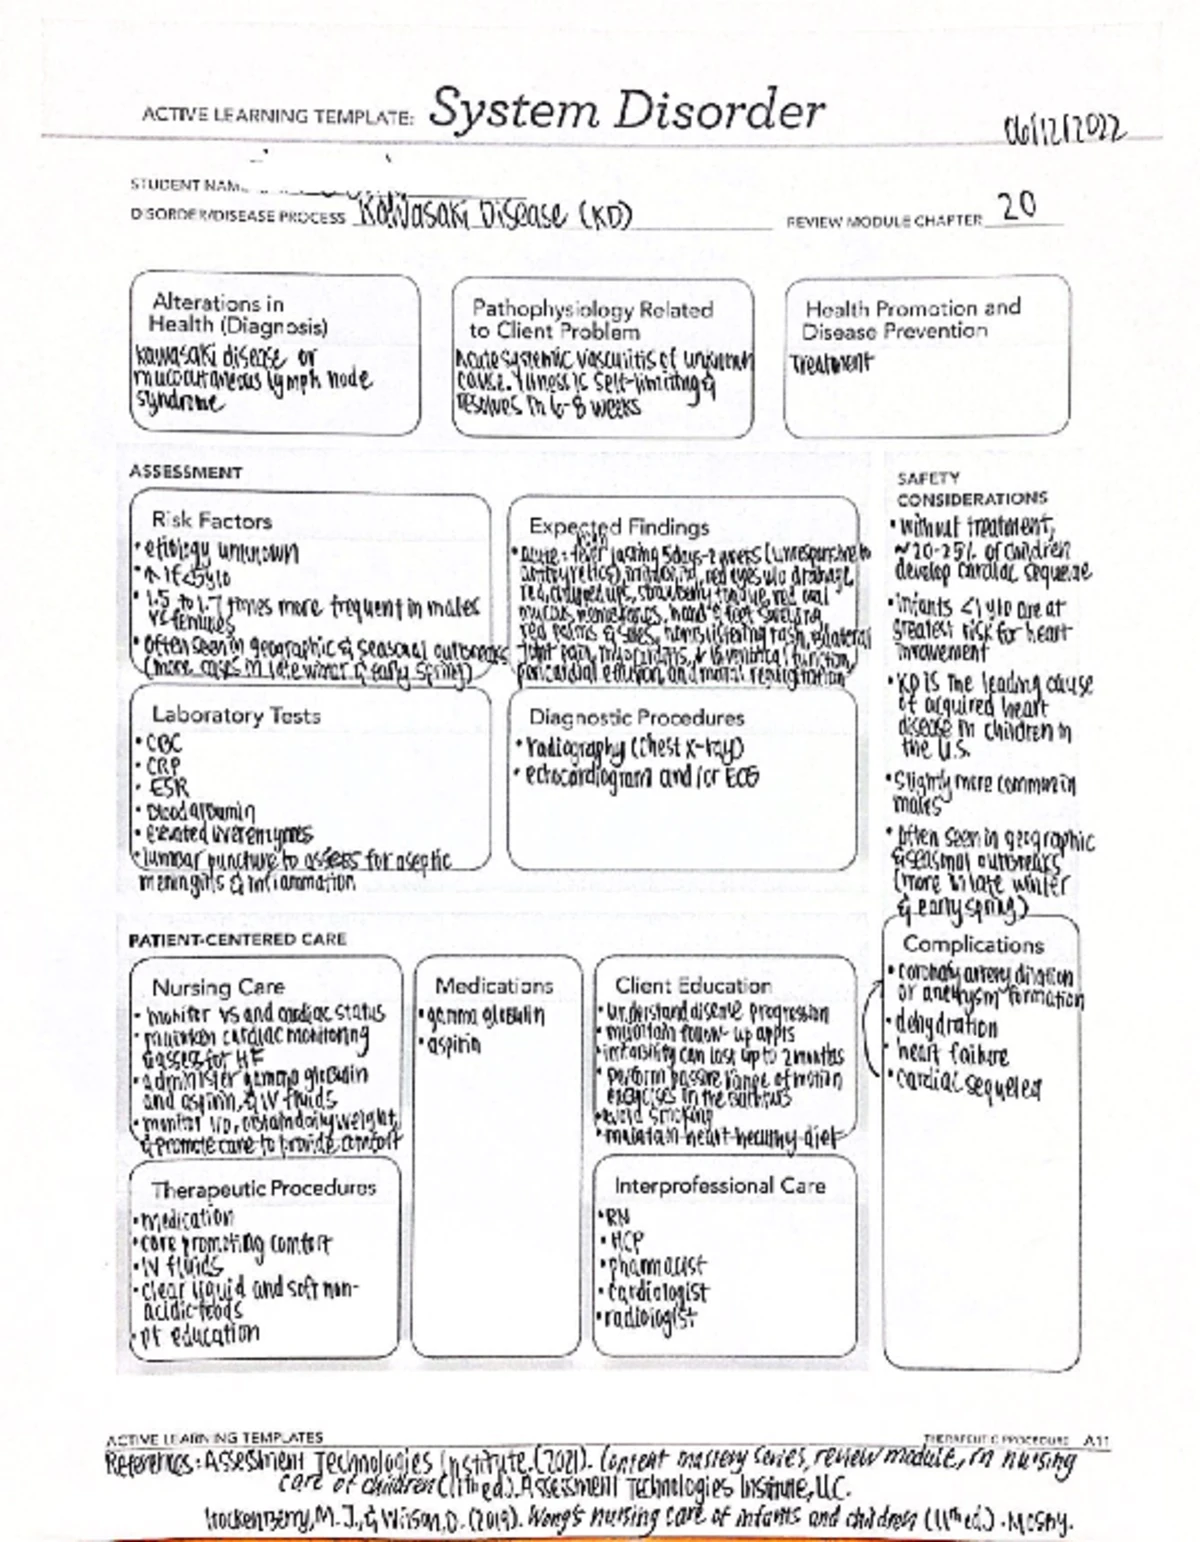 ACTIVE LEARNING TEMPLATE: System Disorder
06/12/2022
STUDENT NAME
DISORDER/DISEASE PROCESS Kawasaki Disease (KD)
REVIEW MODULE CHAPTER 20
Alterations in
Health (Diagnosis)
kawasaki disease or
mucocutaneous lymph node
syndrome
Pathophysiology Related
to Client Problem
Acute systemic vasculitis of unknown
cause. Illness is self-limiting &
resolves in 6-8 weeks
Health Promotion and
Disease Prevention
Treatment
ASSESSMENT
Risk Factors
• etiology unknown
• ↑ if <5 y/o
• 1.5 to 1.7 times more frequent in males
vs females
• Often seen in geographic & seasonal outbreaks
(more cases in late winter & early spring)
Expected Findings
• acute: fever lasting 5days-2 weeks (unresponsive to
antipyretics), red eyes w/o drainage,
red, chapped lips, strawberry tongue, red oral
mucous membranes, hand & foot swelling,
red palms & soles, nonblistering rash, bilateral
joint pain, myocarditis, ↓ left ventrical function,
pericardial effusion, and mitral regurgitation
Laboratory Tests
• CBC
• CRP
• ESR
• Blood albumin
• elevated liver enzymes
• lumbar puncture to assess for aseptic
meningitis & inflammation
Diagnostic Procedures
• radiography (chest x-ray)
• echocardiogram and/or ECG
SAFETY
CONSIDERATIONS
• without treatment,
~20-25% of children
develop cardiac sequelae
• infants <1 y/o are at
greatest risk for heart
involvement
• KD is the leading cause
of acquired heart
disease in children in
the U.S.
• Slightly more common in
males
• Often seen in geographic
& seasonal outbreaks
(more in late winter
& early spring)
PATIENT-CENTERED CARE
Nursing Care
• monitor VS and cardiac status
• maintain cardiac monitoring
& assess for HF
• administer gamma globulin
and aspirin, & IV fluids
• monitor I/O, obtain daily weight,
& promote care to provide comfort
Medications
• gamma globulin
• aspirin
Client Education
• understand disease progression
• maintain follow-up appts
• irritability can last up to 2 months
• perform passive range of motion
exercises in the bathtub
• Avoid smoking
• maintain heart-healthy diet
Complications
• coronary artery dilation
or aneurysm formation
• dehydration
• heart failure
• cardiac sequelea
Therapeutic Procedures
• medication
• care promoting comfort
• IV fluids
• clear liquid and soft non-
acidic foods
• pt education
Interprofessional Care
• RN
• HCP
• pharmacist
• cardiologist
• radiologist
ACTIVE LEARNING TEMPLATES
THERAPEUTIC PROCEDURE A11
References: Assessment Technologies Institute. (2021). Content mastery series, review module, rn nursing
care of children (11th ed.). Assessment Technologies Institute, LLC.
Hockenberry, M. J., & Wilson, D. (2019). Wong's nursing care of infants and children (11th ed.). Mosby.